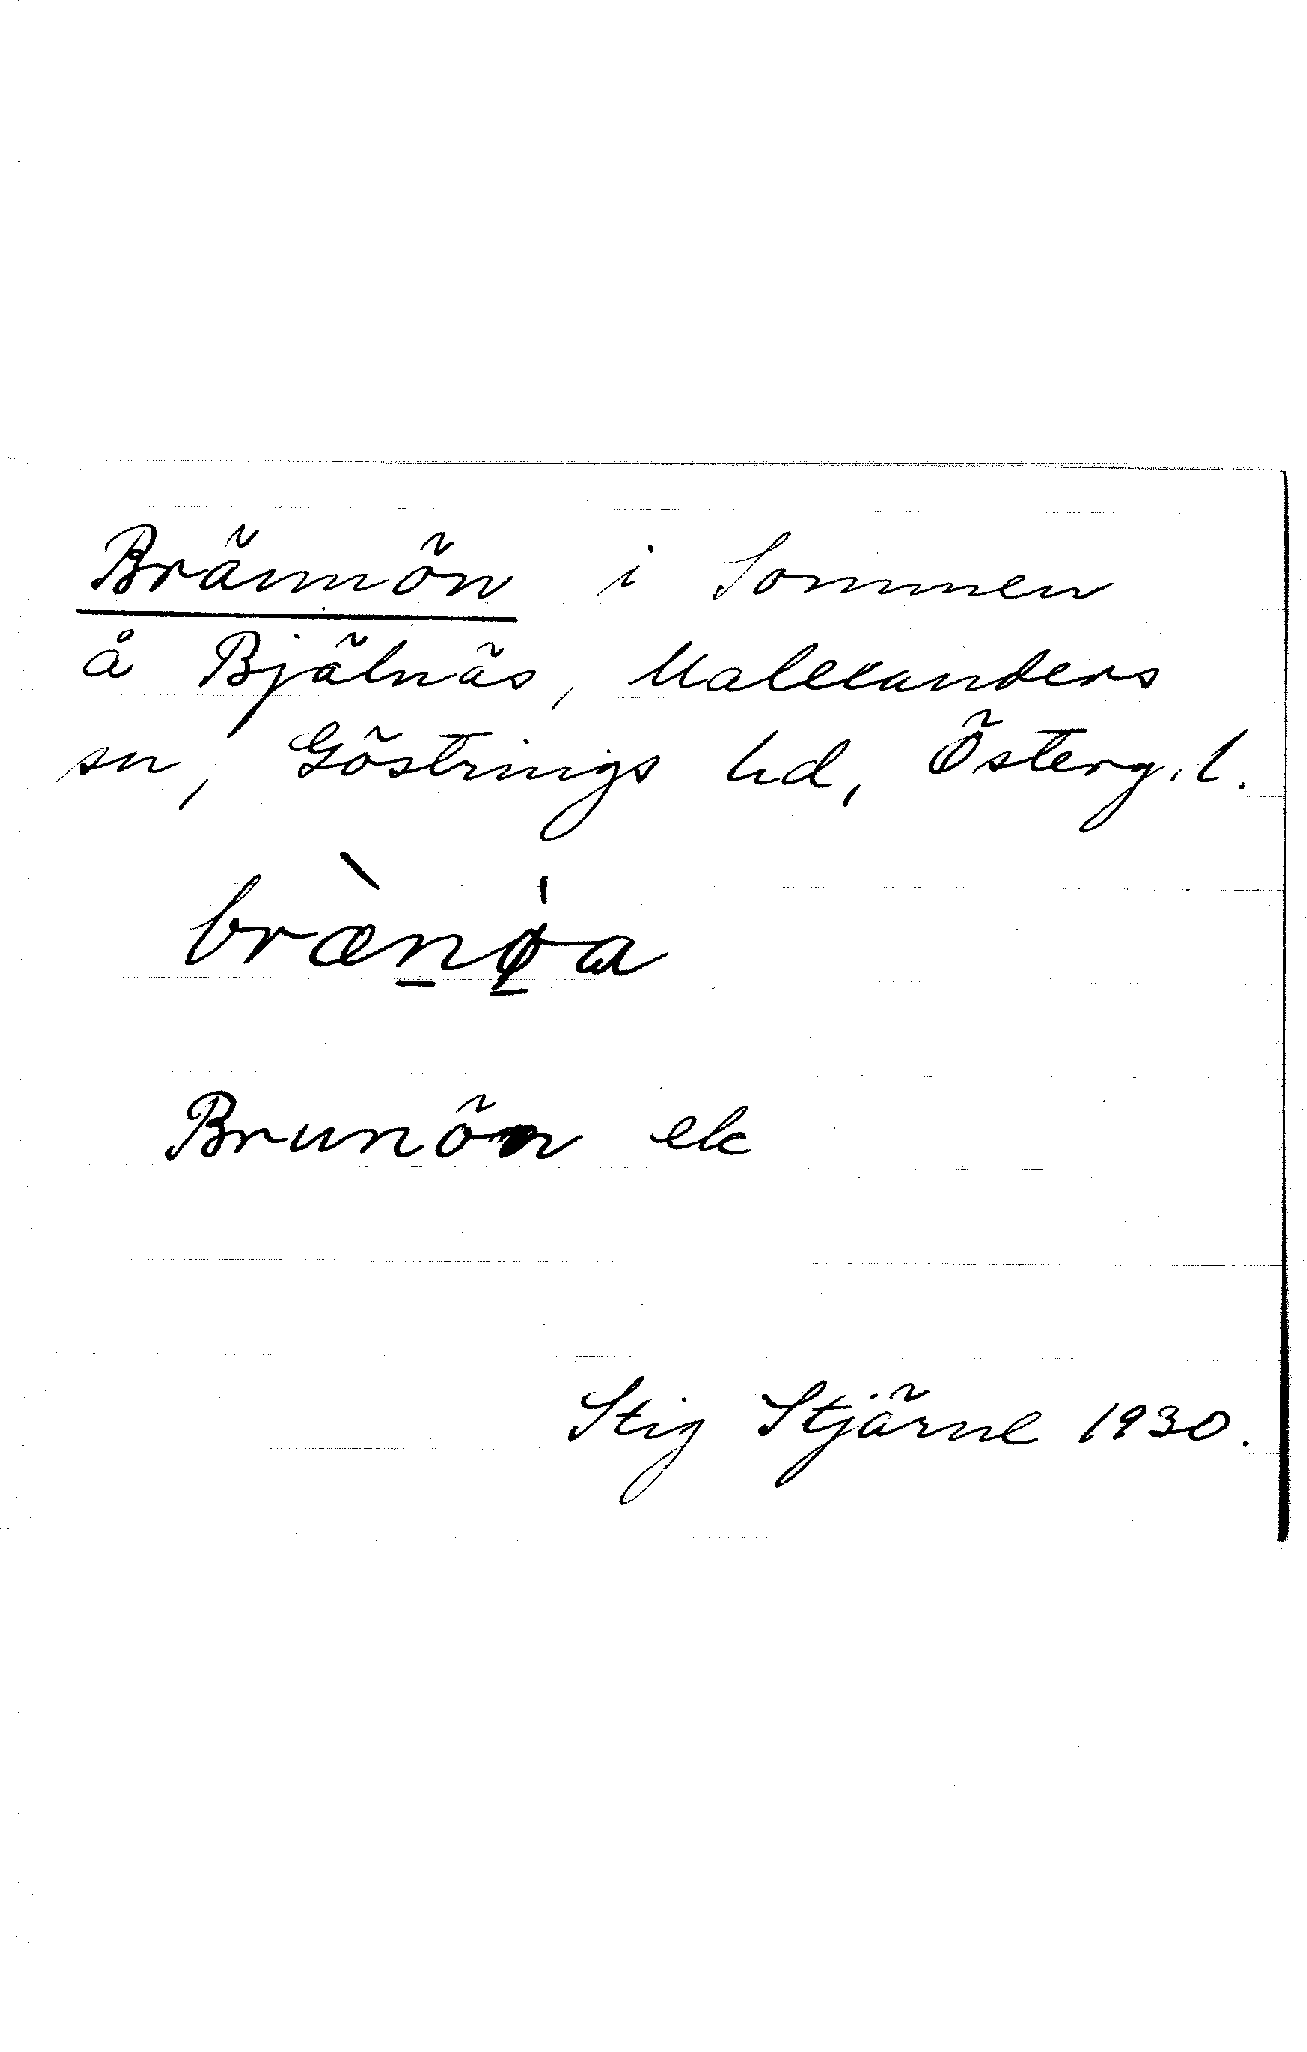 Brännön i Sommen
å Bjälnäs, Malexanders
sn, Göstrings hd, Österg. l.
bræ̀nø̍a
Brunön ek
Stig Stjärne 1930.